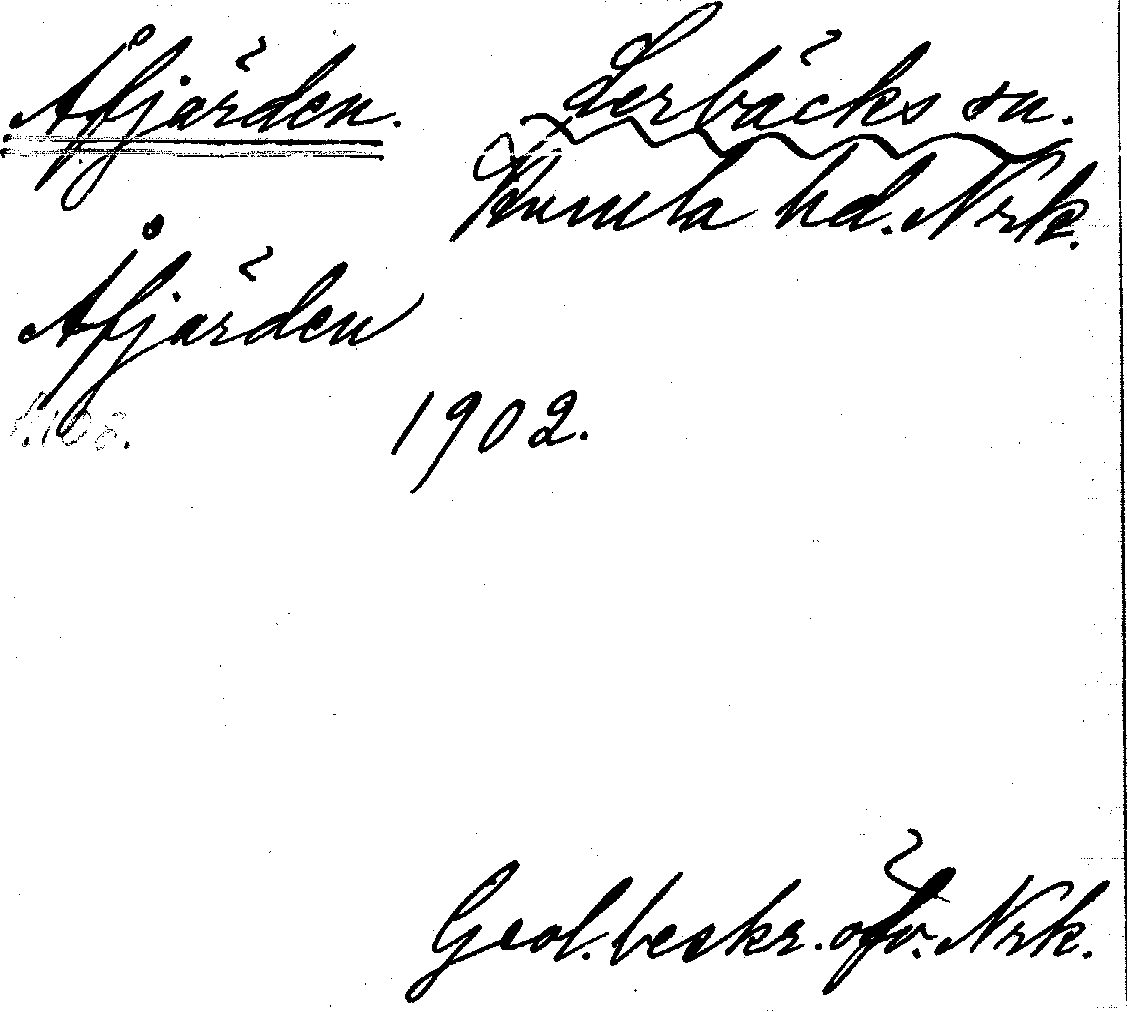 Åfjärden. Lerbäcks sn.
Kumla hd. Nrk.
Åfjärden
1902.
Geol. beskr. öfv. Nrk.